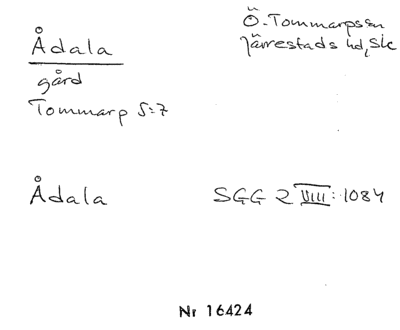 Ådala
Ö-Tommarps sn
Järrestads hd, Sk
gård
Tommarp 5:7
Ådala
SGG 2 VIII: 1084
Nr 16424